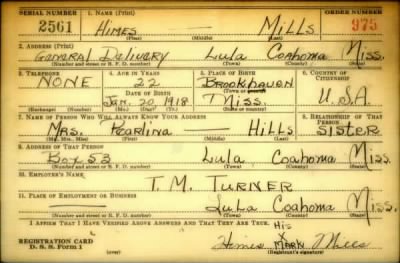 SERIAL NUMBER 1. NAME (Print) ORDER NUMBER
2561 Himes — Mills 975
(First) (Middle) (Last)
2. ADDRESS (Print)
General Delivery Lula Coahoma Miss.
(Number and street or R. F. D. number) (Town) (County) (State)
3. TELEPHONE 4. AGE IN YEARS 5. PLACE OF BIRTH 6. COUNTRY OF CITIZENSHIP
NONE 22 Brookhaven
DATE OF BIRTH (Town or county)
Jan. 20 1918 Miss. U.S.A.
(Exchange) (Number) (Mo.) (Day) (Yr.) (State or country)
7. NAME OF PERSON WHO WILL ALWAYS KNOW YOUR ADDRESS 8. RELATIONSHIP OF THAT PERSON
Mrs. Pearlina — Hills Sister
(Mr., Mrs., Miss) (First) (Middle) (Last)
9. ADDRESS OF THAT PERSON
Box 53 Lula Coahoma Miss.
(Number and street or R. F. D. number) (Town) (County) (State)
10. EMPLOYER'S NAME
T. M. TURNER
11. PLACE OF EMPLOYMENT OR BUSINESS
— Lula Coahoma Miss.
(Number and street or R. F. D. number) (Town) (County) (State)
I AFFIRM THAT I HAVE VERIFIED ABOVE ANSWERS AND THAT THEY ARE TRUE.
His
X
REGISTRATION CARD Himes MARK Mills
D. S. S. Form 1 (Registrant's signature)